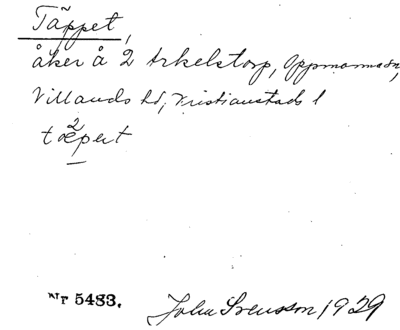 Täppet,
åker å 2 Arkelstorp, Oppmanna sn,
Villands hd, Kristianstads l
tæ²pet
Nr 5483.
John Svensson 1929